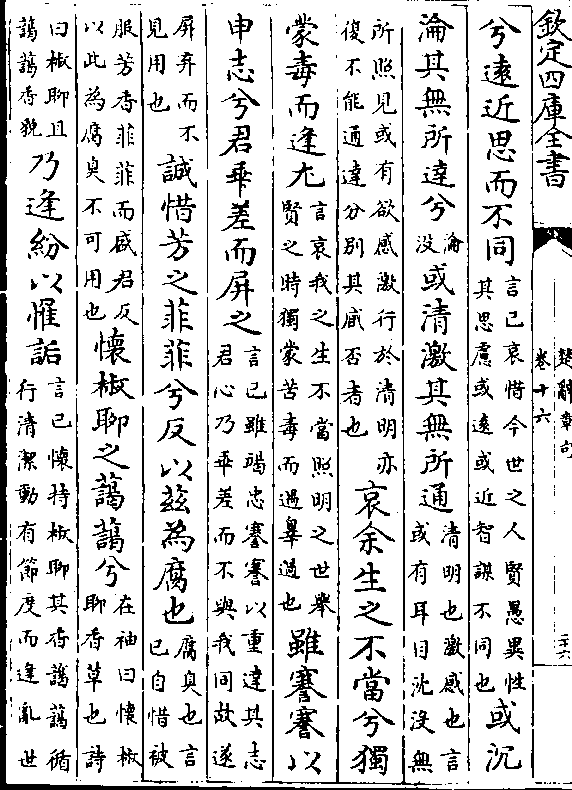 欽定四庫全書
楚辭章句
卷十六
二十六
兮遠近思而不同言己哀惜今世之人賢愚異性其思慮或遠或近智謀不同也或沉
淪其無所達兮淪沒或清激其無所通清明也激感也言或有耳目沈沒無
所照見或有欲感激行於清明亦復不能通達分別其臧否者也哀余生之不當兮獨
蒙毒而逢尤言哀我之生不當照明之世舉賢之時獨蒙苦毒而遇辠過也雖謇謇以
申志兮君乖差而屏之言己雖竭忠謇謇以重達其志君心乃乖差而不與我同故遂
屏弃而不見用也誠惜芳之菲菲兮反以茲為腐也腐臭也言己自惜被
服芳香菲菲而盛君反以此為腐臭不可用也懷椒聊之蔎蔎兮在袖曰懷椒聊香草也詩
曰椒聊且蔎蔎香貌乃逢紛以罹詬言己懷持椒聊其香蔎蔎循行清潔動有節度而逢亂世